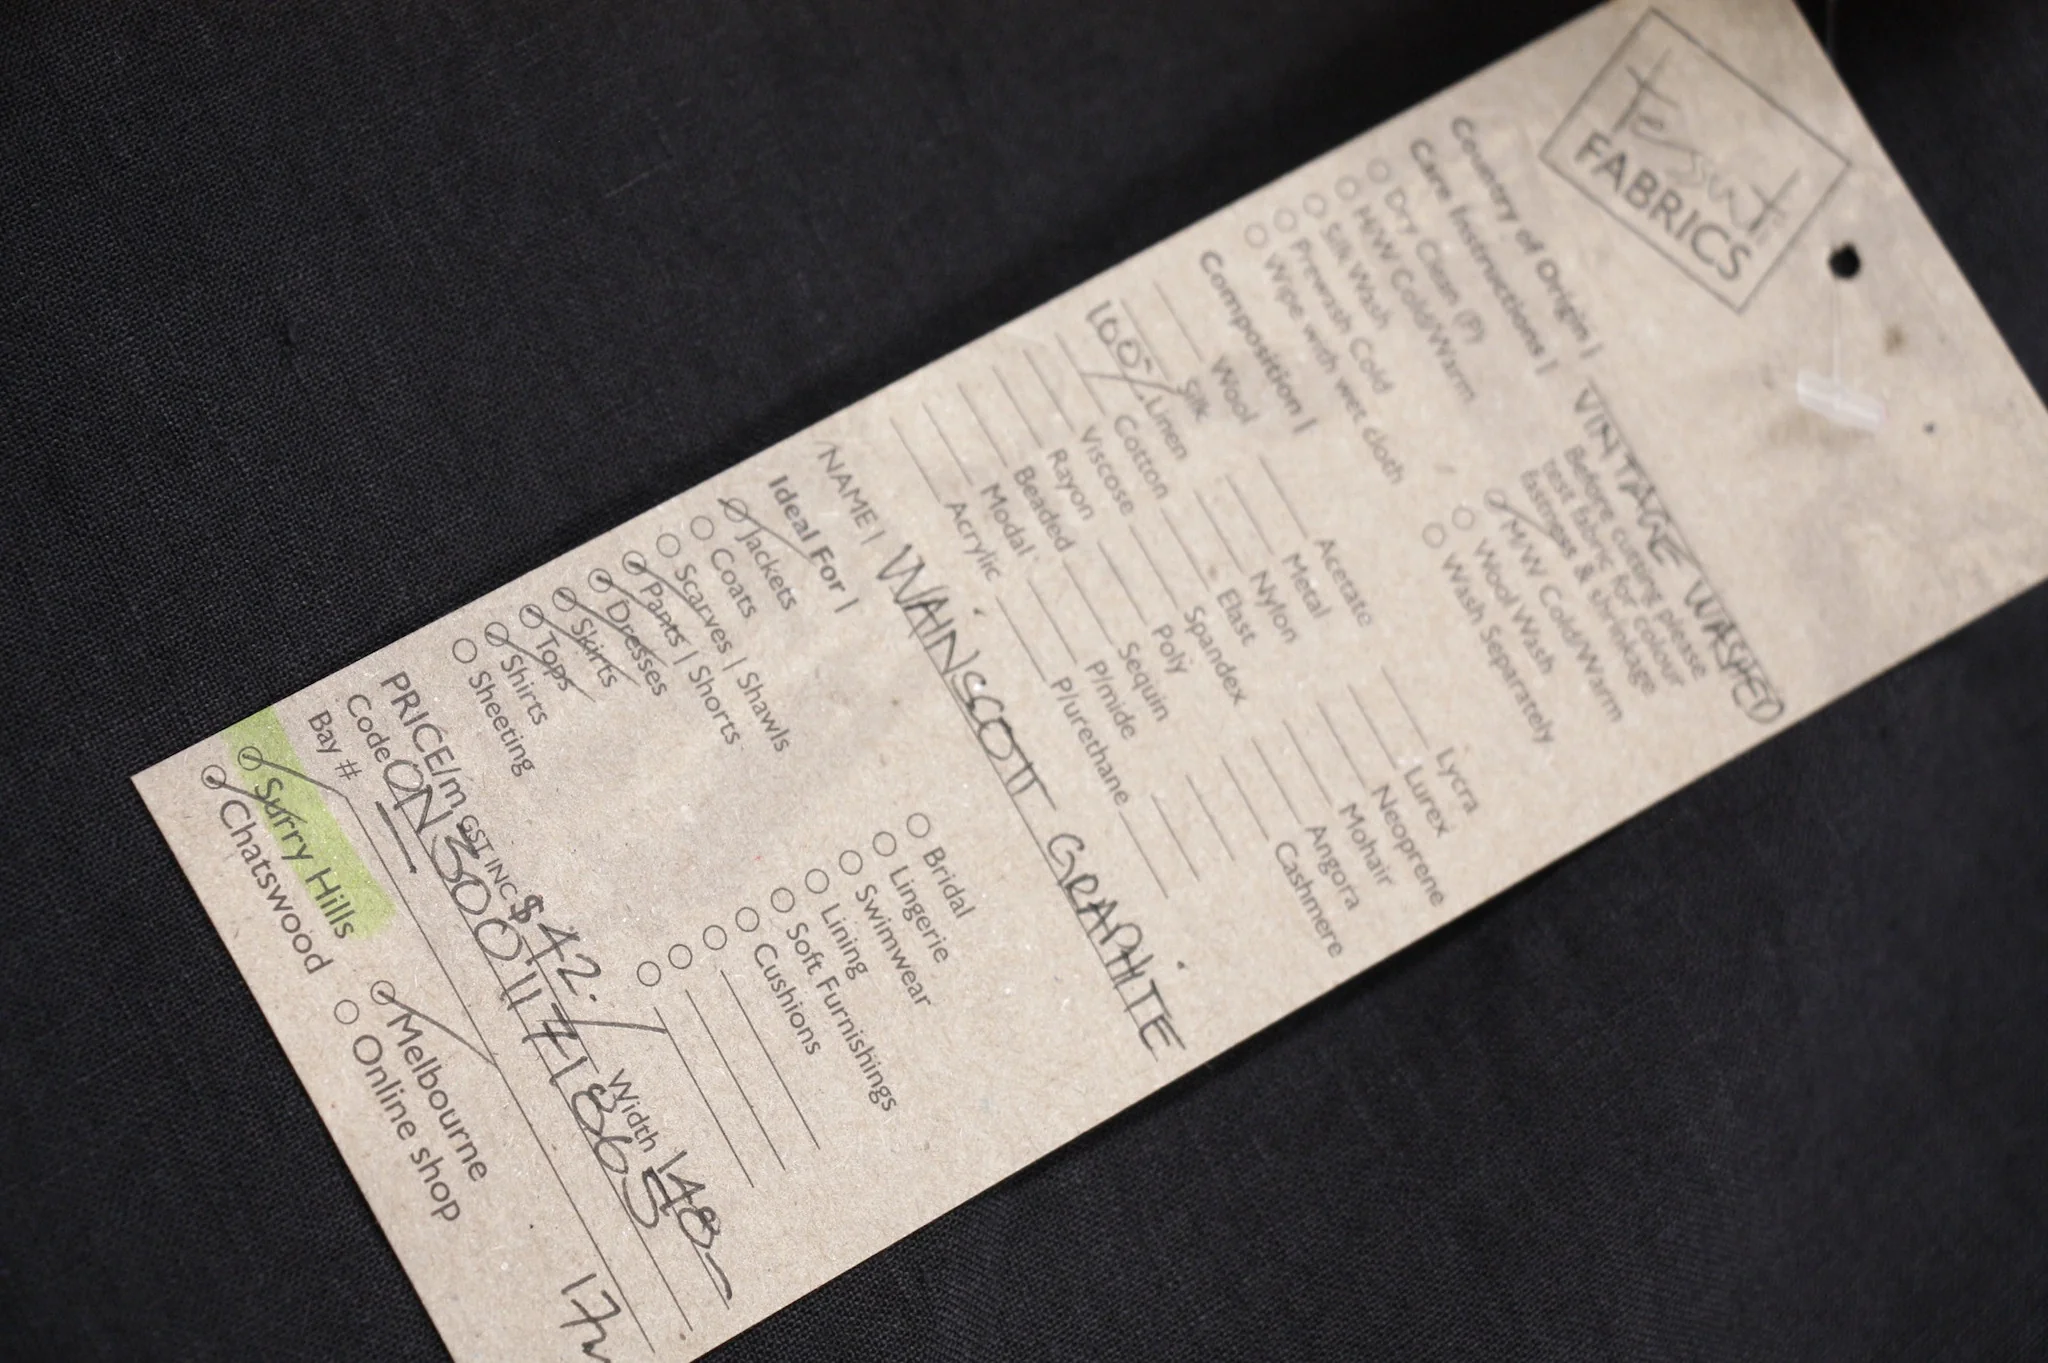 Tessuti
FABRICS
Country of Origin | VINTAGE WASHED
Care Instructions |
Before cutting please
test fabric for colour
fastness & shrinkage
Dry Clean (P)
H/W Cold/Warm
Silk Wash
Prewash Cold
Wipe with wet cloth
M/W Cold/Warm
Wool Wash
Wash Separately
Composition |
Wool
Silk
100% Linen
Cotton
Viscose
Rayon
Beaded
Modal
Acrylic
Acetate
Metal
Nylon
Elast
Spandex
Poly
Sequin
P/mide
P/urethane
Lycra
Lurex
Neoprene
Mohair
Angora
Cashmere
NAME | WAINSCOTT GRAPHITE
Ideal For |
Jackets
Coats
Scarves | Shawls
Pants | Shorts
Dresses
Skirts
Tops
Shirts
Sheeting
Bridal
Lingerie
Swimwear
Lining
Soft Furnishings
Cushions
PRICE/m GST INC $42. Width 148
Code ON3001171865
Bay # 
Surry Hills
Chatswood
Melbourne
Online shop